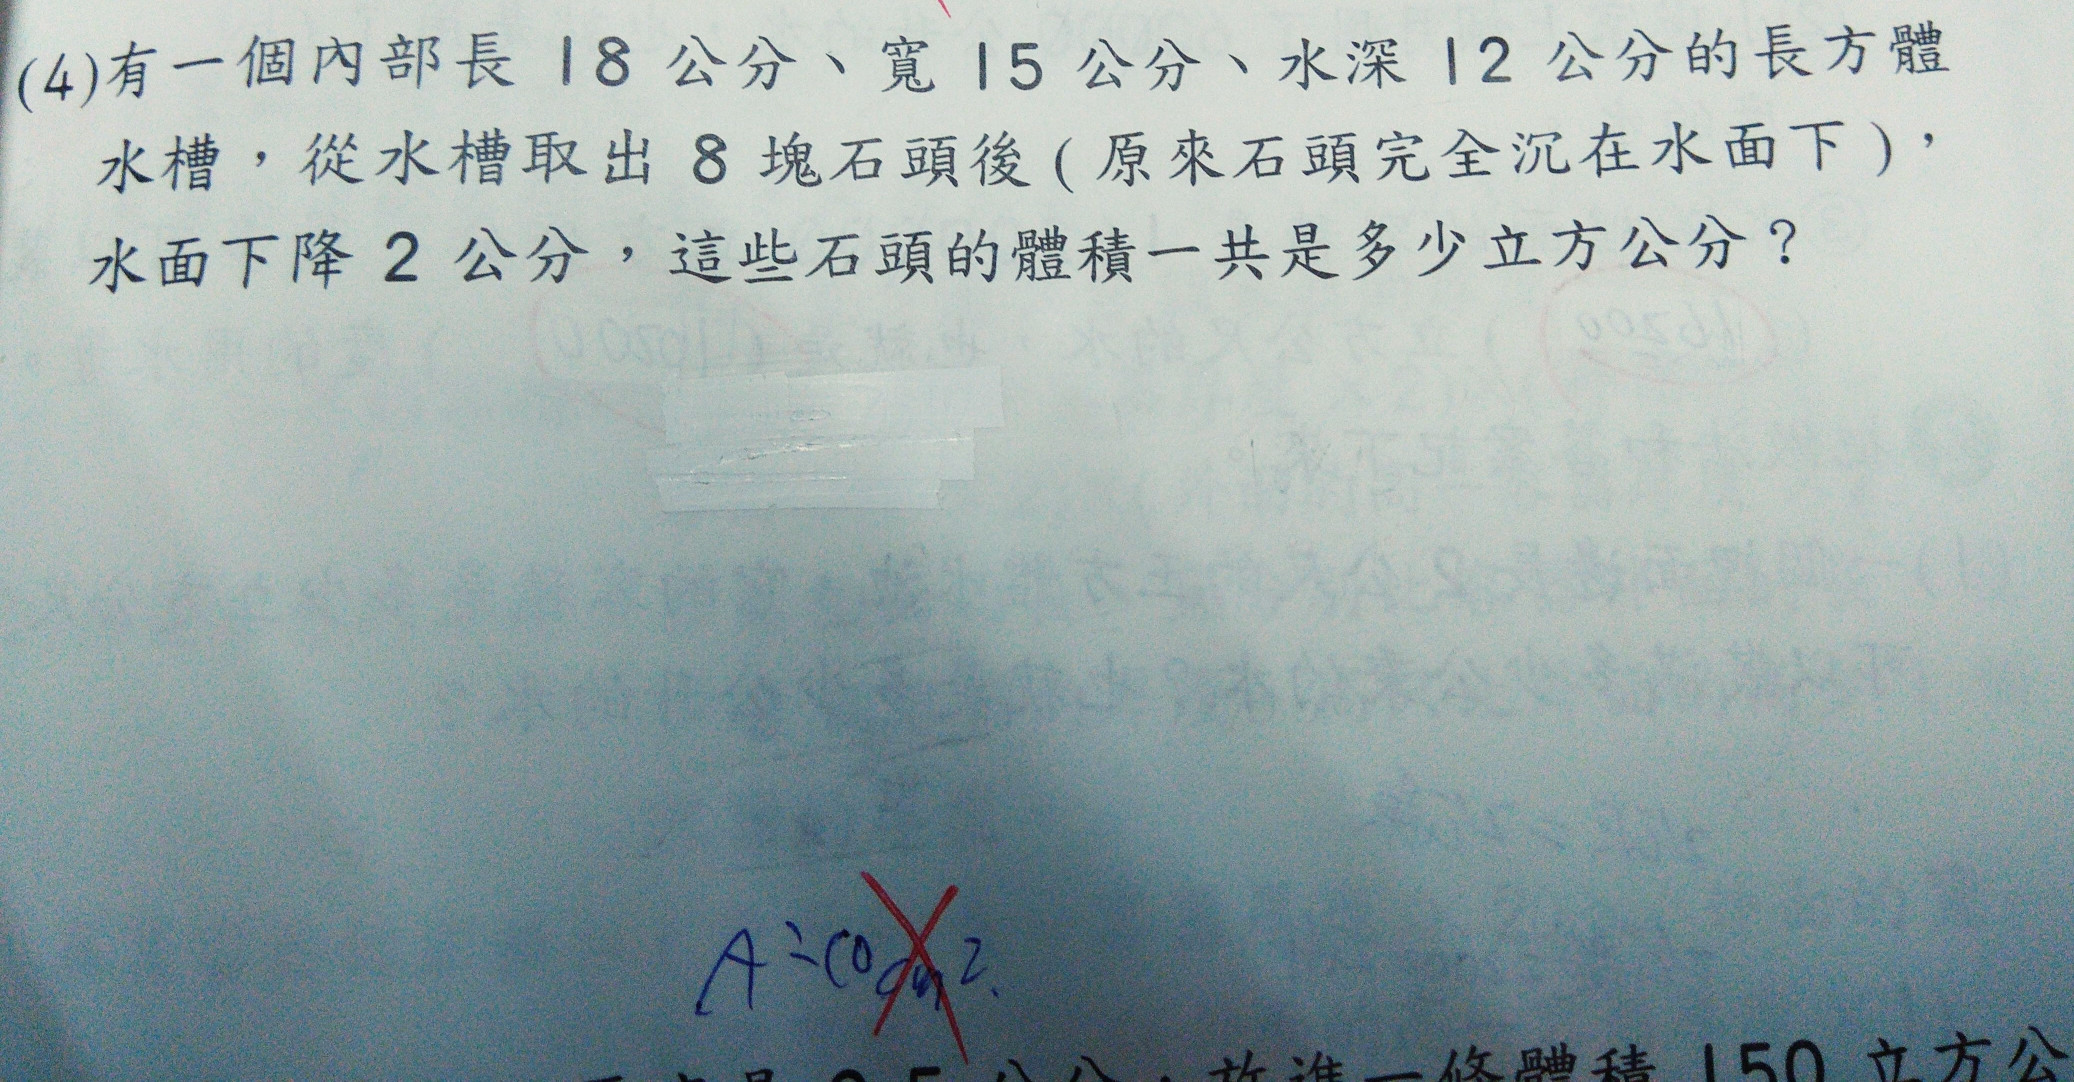 (4)有一個內部長 18 公分、寬 15 公分、水深 12 公分的長方體
水槽，從水槽取出 8 塊石頭後(原來石頭完全沉在水面下)，
水面下降 2 公分，這些石頭的體積一共是多少立方公分？
A
公分，放進一條體積 150 立方公